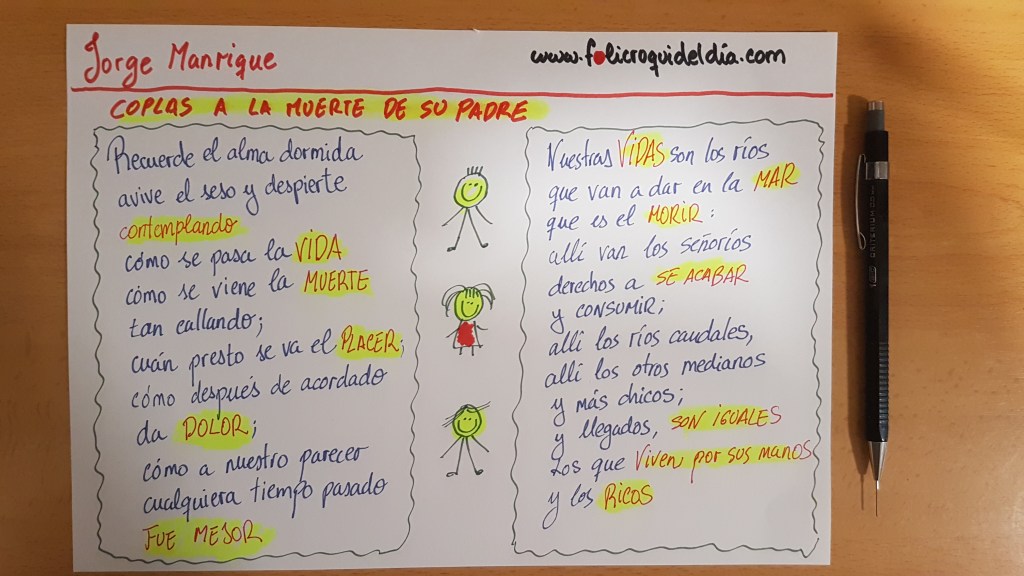 Jorge Manrique
www.folicroquideldía.com
COPLAS A LA MUERTE DE SU PADRE
Recuerde el alma dormida
avive el seso y despierte
contemplando
cómo se pasa la VIDA
cómo se viene la MUERTE
tan callando;
cuán presto se va el PLACER;
cómo después de acordado
da DOLOR;
cómo a nuestro parecer
cualquiera tiempo pasado
FUE MEJOR
Nuestras VIDAS son los ríos
que van a dar en la MAR
que es el MORIR:
allí van los señoríos
derechos a SE ACABAR
y CONSUMIR;
allí los ríos caudales,
allí los otros medianos
y más chicos;
y llegados, SON IGUALES
Los que Viven por sus manos
y los RICOS
CRITERIUM